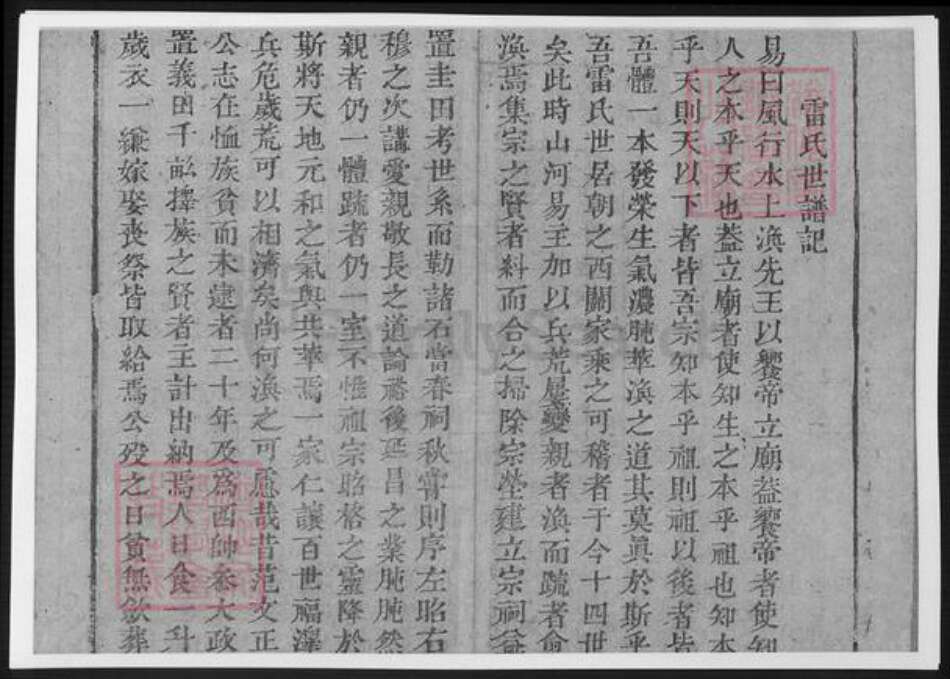 雷氏世譜記
易曰風行水上渙先王以饗帝立廟葢饗帝者使知
人之本乎天也葢立廟者使知生之本乎祖也知本
乎天則天以下者皆吾宗知本乎祖則祖以後者皆
吾體一本發榮生氣濃肫萃渙之道其莫眞於斯乎
吾雷氏世居朝之西關家乘之可稽者于今十四世
矣此時山河易主加以兵荒屢變親者渙而疏者俞
渙焉集宗之賢者糾而合之掃除宗塋建立宗祠益
置圭田考世系而勒諸石當春祠秋嘗則序左昭右
穆之次講愛親敬長之道論裕後延昌之業肫肫然
親者仍一體疏者仍一室不惟祖宗昭格之靈降於
斯將天地元和之氣與共萃焉一家仁讓百世福澤
兵危歲荒可以相濟矣尚何渙之可慮哉昔范文正
公志在恤族貧而未逮者二十年及為西帥叅大政
置義田千畝擇族之賢者主計出納焉人日食一升
歲衣一縑嫁娶喪祭皆取給焉公殁之日貧無歛葬